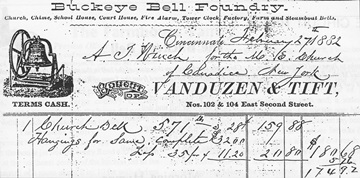 Buckeye Bell Foundry.
Church, Chime, School House, Court House, Fire Alarm, Tower Clock, Factory, Farm and Steamboat Bells.
Cincinnati February 27 1882
A. T. Winch for the M. E. Church
of New York
BOUGHT OF
VANDUZEN & TIFT,
TERMS CASH.
Nos. 102 & 104 East Second Street.
1 Church Bell 571 lb 28 159 88
Hangings for Same, Complete $32.00
Less 35% 11.20 20 80 180 68
174